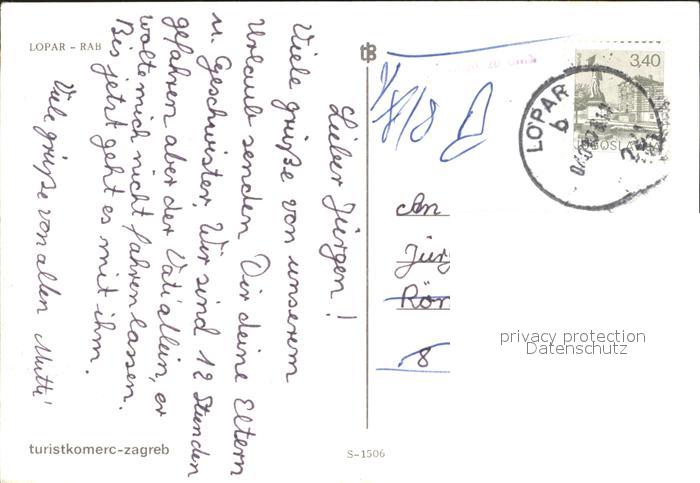 LOPAR - RAB
Lieber Jürgen!
Viele grüße von unserem
Urlaub senden Dir deine Eltern
u. Geschwister. Wir sind 12 Stunden
gefahren aber der Vati allein, er
wollte mich nicht fahren lassen.
Bis jetzt geht es mit ihm.
Viele grüße von allen Mutti!
turistkomerc-zagreb
tB
S-1506
3,40
JUGOSLAVIJA
LOPAR
b
An
Jürg
Rön
8
privacy protection
Datenschutz